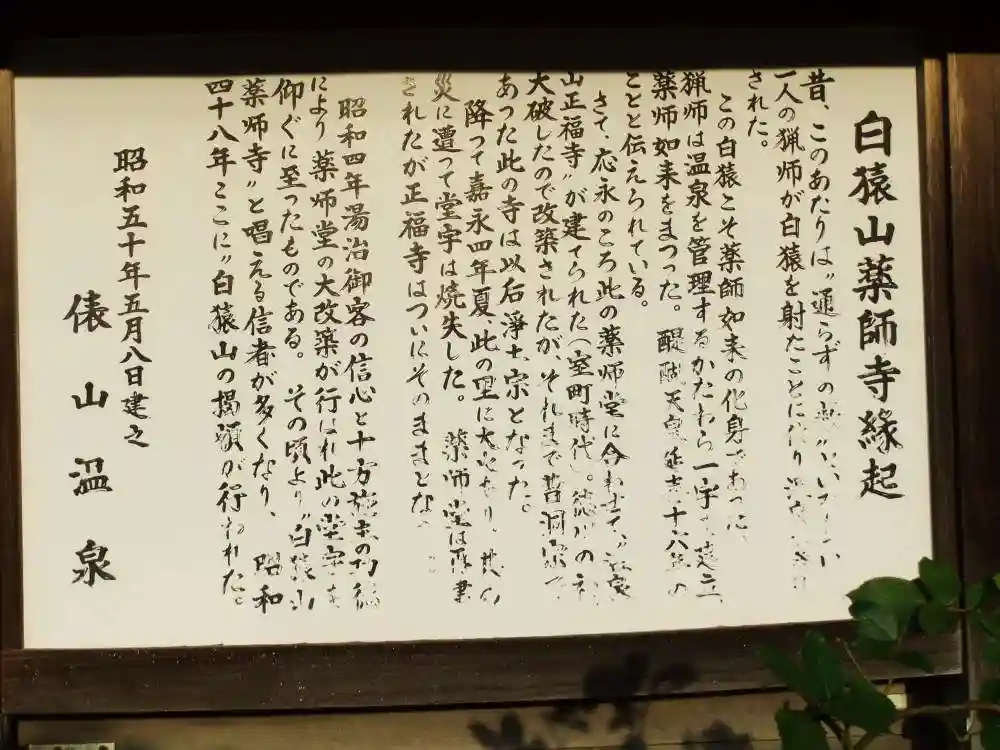 白猿山薬師寺縁起
昔、このあたりは〝通らずの
一人の猟師が白猿を射たことに
された。
この白猿こそ薬師如来の化身であっ
猟師は温泉を管理するかたわら一宇 建立
薬師如来をまつった。醍醐天皇延喜十六年の
ことと伝えられている。
さて、応永のころ此の薬師堂に合わせて、
山正福寺〟が建てられた(室町時代)。徳川の初
大破したので改築されたが、それまで曹洞宗で
あった此の寺は以后浄土宗となった。
降って嘉永四年夏、此の里に大火あり、其の
災に遭って堂宇は焼失した。薬師堂は再建
されたが正福寺はついにそのままとな
昭和四年湯治御客の信心と十方施主の功徳
により薬師堂の大改築が行はれ此の堂宇を
仰ぐに至ったものである。その頃より〝白猿山
薬師寺〟と唱える信者が多くなり、昭和
四十八年ここに〝白猿山の掲額が行われた。
昭和五十年五月八日建之
俵山温泉